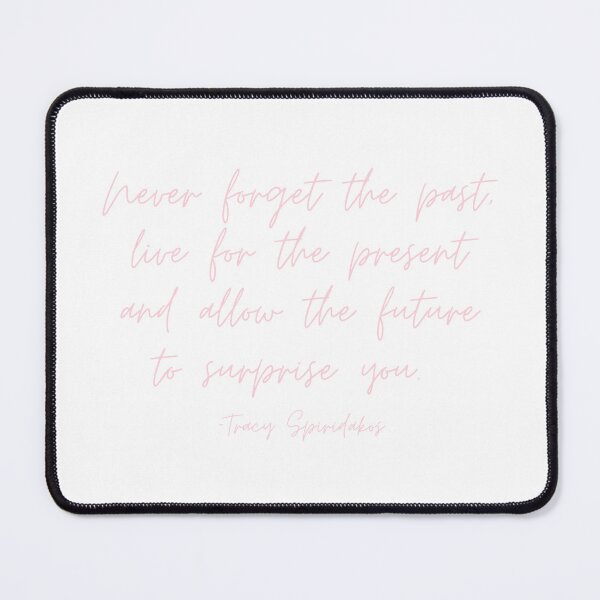 Never forget the past,
live for the present
and allow the future
to surprise you.
-Tracy Spiridakos